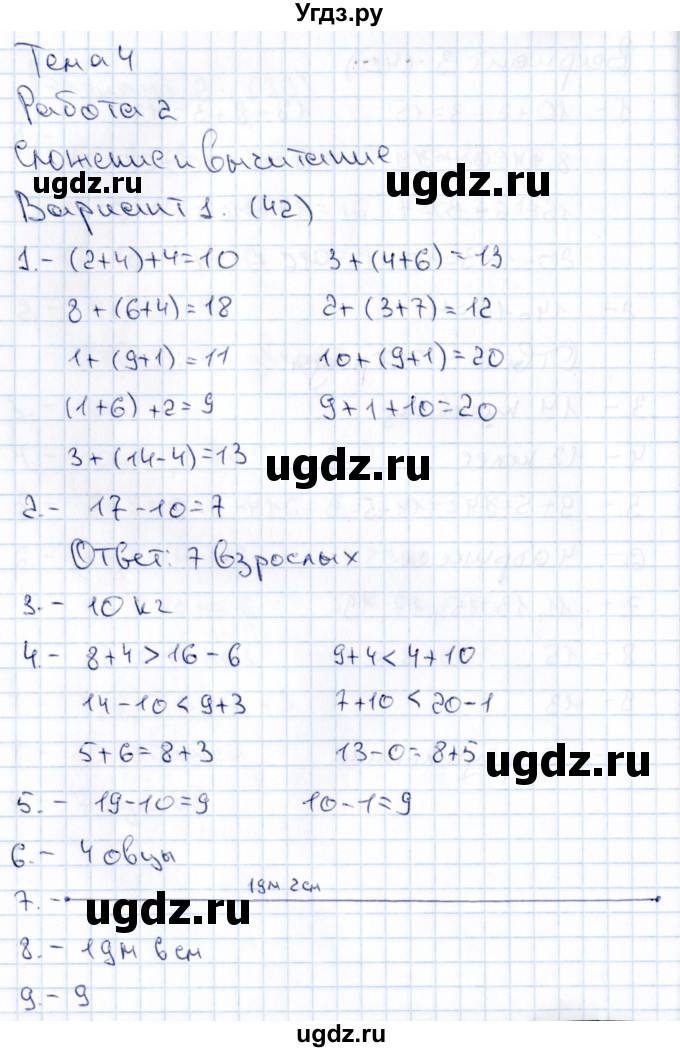 Угдз.ру
Тема 4
Работа 2
Сложение и вычитание
ugdz.ru ugdz.ru
Вариант 1. (42)
1.- (2+4)+4=10 3+(4+6)=13
8+(6+4)=18 2+(3+7)=12
1+(9+1)=11 10+(9+1)=20
(1+6)+2=9 9+1+10=20
3+(14-4)=13 ugdz.ru
2.- 17-10=7
Ответ: 7 взрослых
3.- 10 кг
4.- 8+4>16-6 9+4<4+10
14-10<9+3 7+10<20-1
5+6=8+3 13-0=8+5 ugdz.ru
5.- 19-10=9 10-1=9
6.- 4 овцы
7.- 1дм 2см
ugdz.ru
8.- 1дм 8см
9.- 9
ugdz.ru